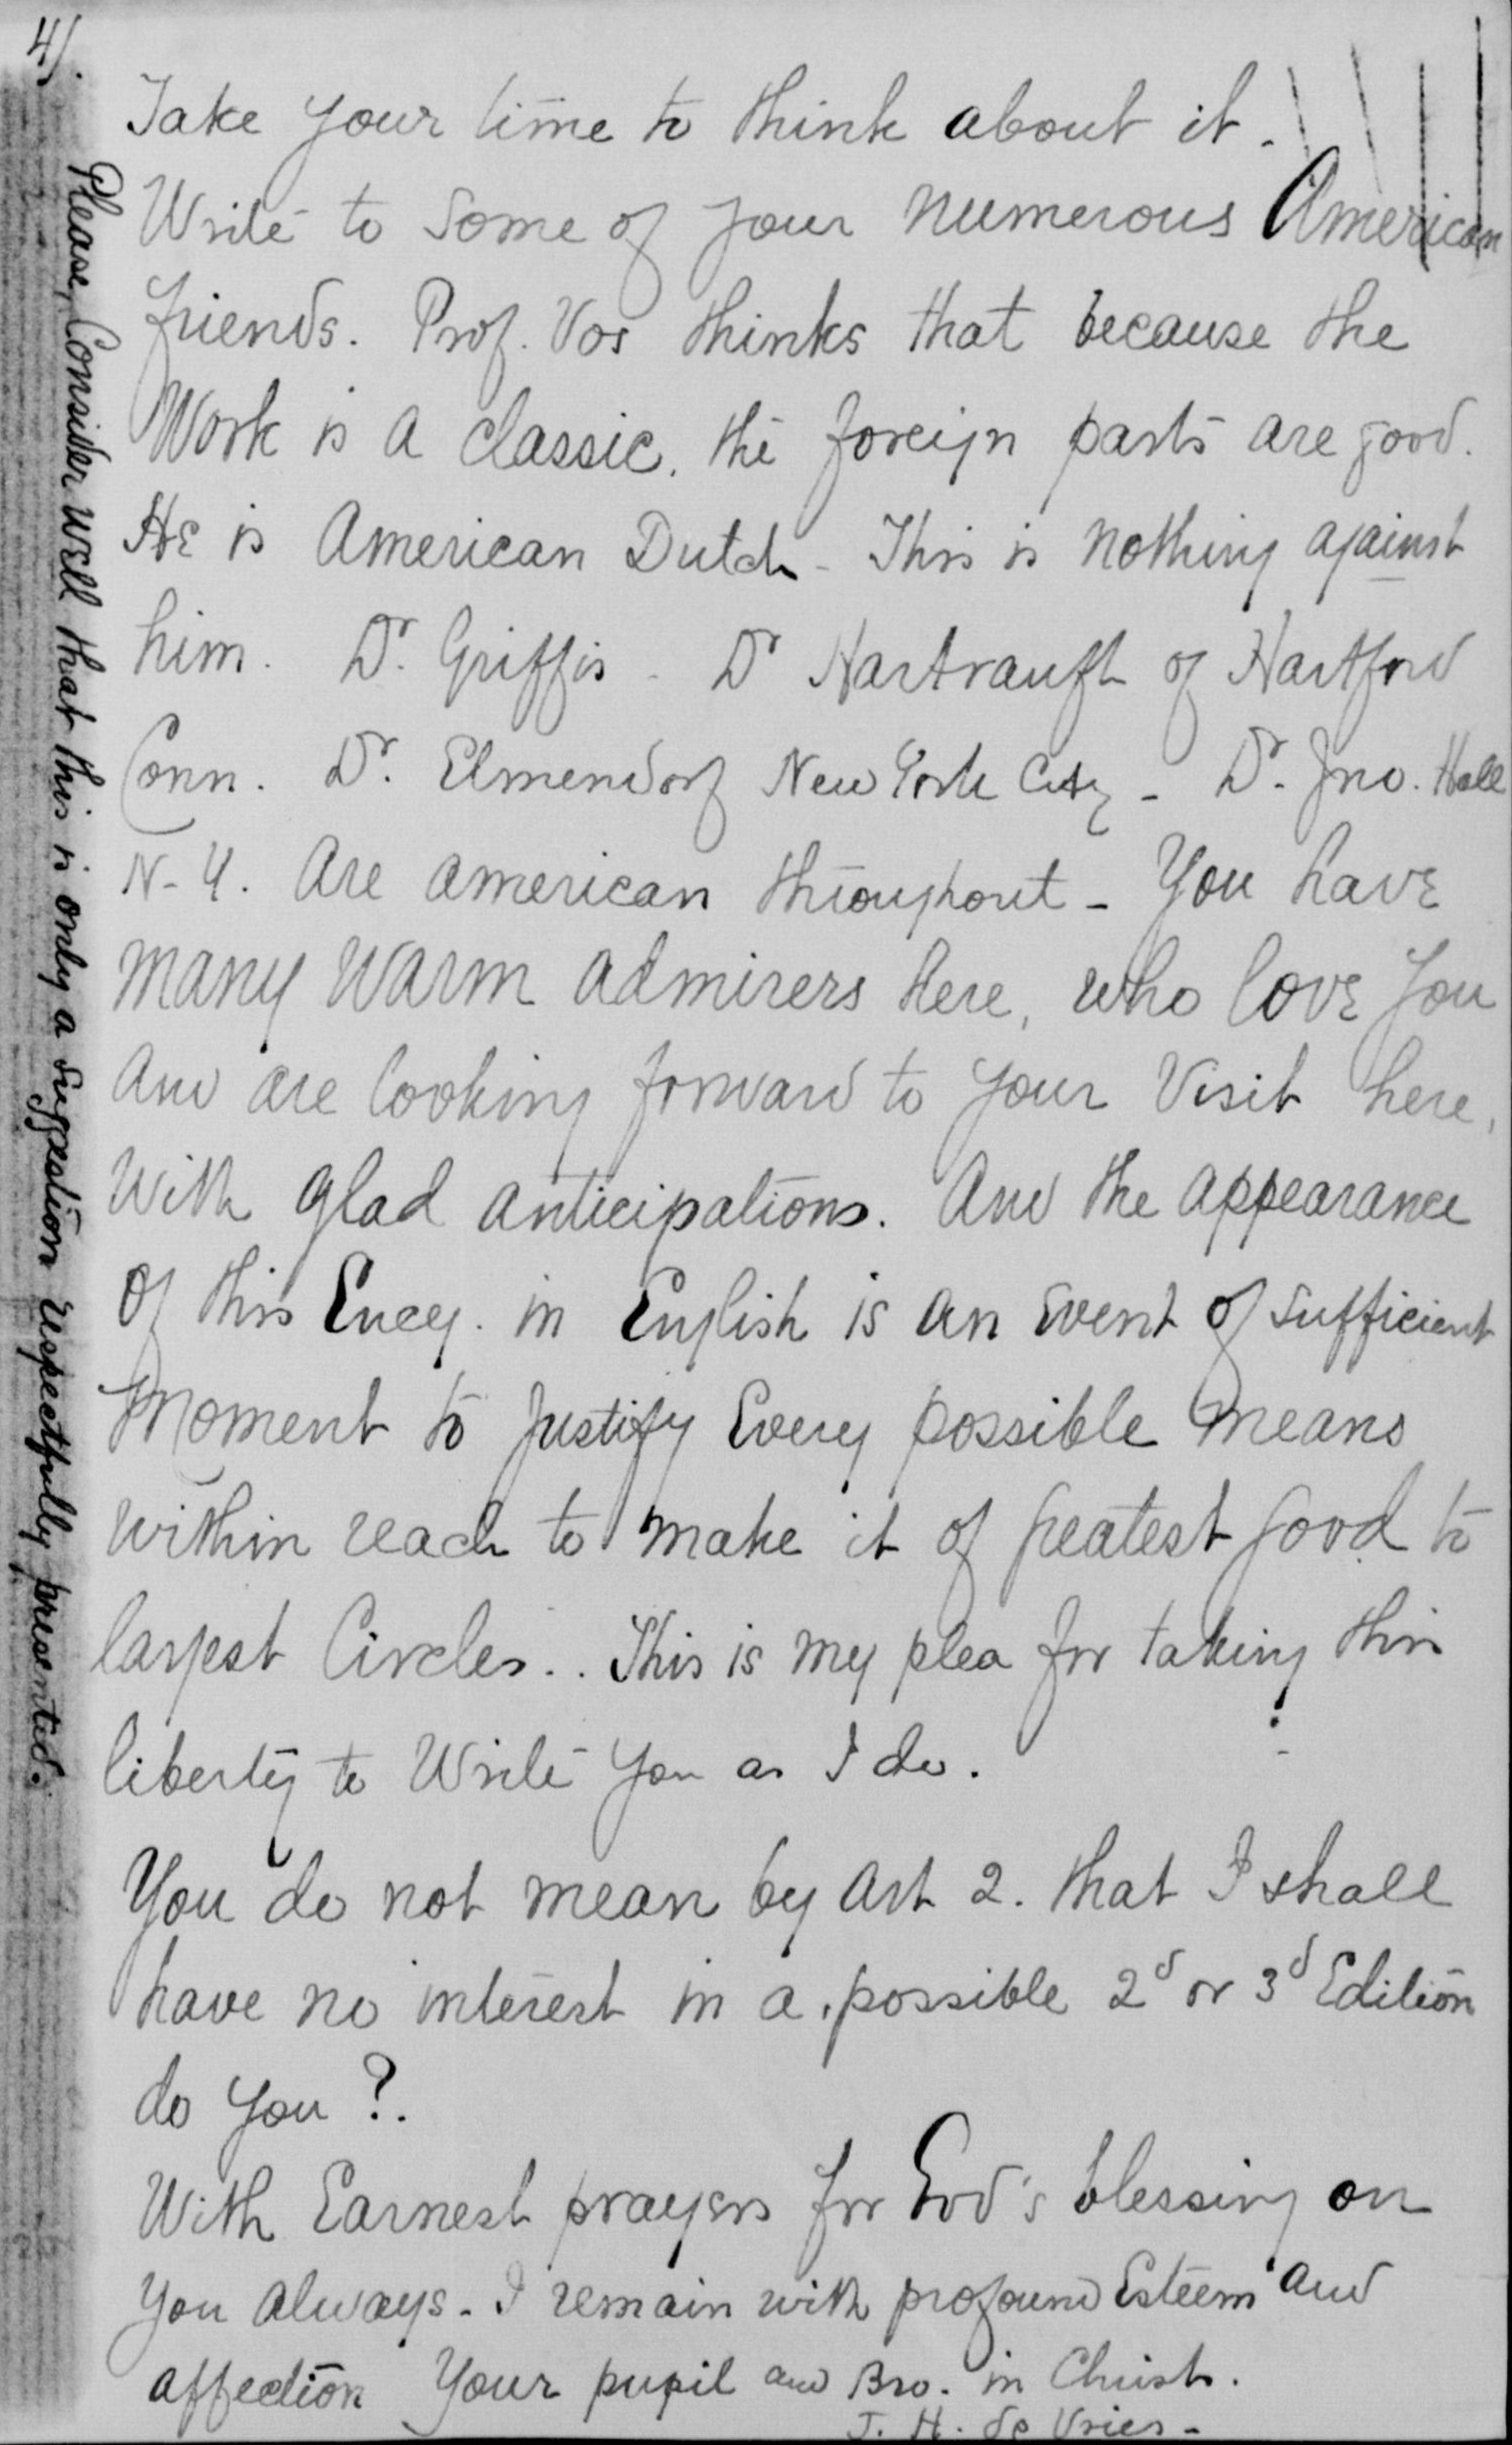 4).
Take your time to think about it.
Write to some of your numerous American
friends. Prof. Vos thinks that because the
Work is a classic. the foreign parts are good.
He is American Dutch - This is nothing against
him. Dr. Griffis - Dr Hartranft of Hartford
Conn. Dr. Elmendorf New York City - Dr. Jno. Hall
N-Y. are american throughout - You have
many warm admirers here, who love you
and are looking forward to your Visit here,
with glad anticipations. And the appearance
of this Ency. in English is an event of sufficient
moment to justify Every possible means
within reach to make it of greatest good to
largest Circles.. This is my plea for taking this
liberty to Write you as I do.
You do not mean by Art 2. that I shall
have no interest in a possible 2d or 3d Edition
do you?.
With Earnest prayers for God's blessing on
you always - I remain with profound Esteem and
affection Your pupil and Bro. in Christ.
J. H. de Vries -
Please, Consider well that this is only a suggestion respectfully presented.